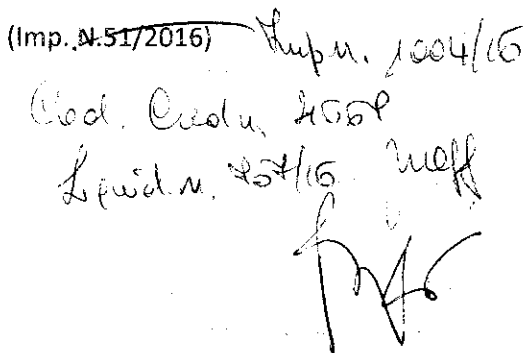 (Imp. N.51/2016) Imp n. 1004/16
Cod. Cred n.
Liquid. n. 757/16